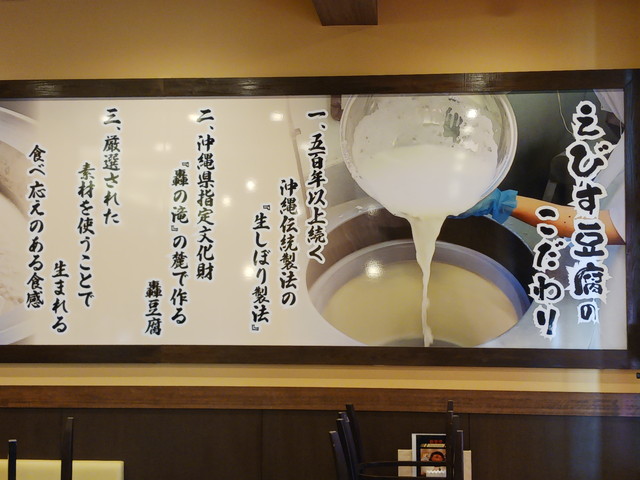 えびす豆腐の
こだわり
一、五百年以上続く
沖縄伝統製法の
『生しぼり製法』
二、沖縄県指定文化財
『轟の滝』の麓で作る
轟豆腐
三、厳選された
素材を使うことで
生まれる
食べ応えのある食感